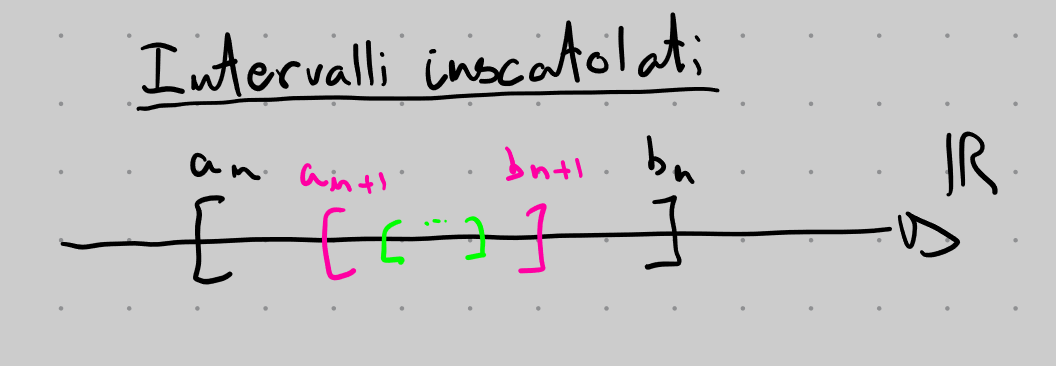 Intervalli inscatolati
aₙ aₙ₊₁ bₙ₊₁ bₙ ℝ
[ [ [ ... ] ] ]